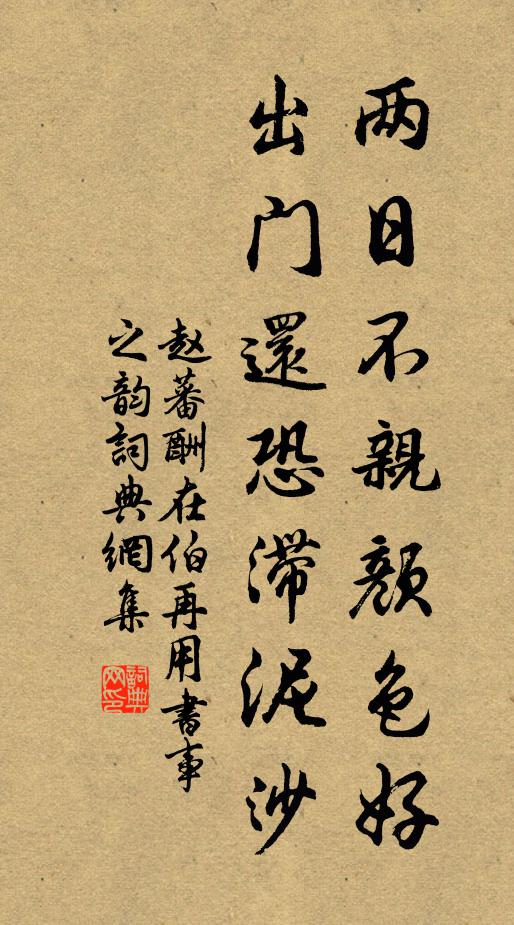 两日不親顔色好
出门還恐滯泥沙
赵蕃酬在伯再用書事
之韵詞典網集
詞典网印